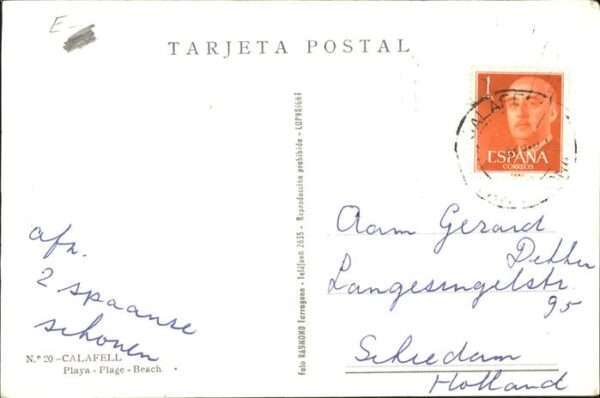 E-
TARJETA POSTAL
1
ESPAÑA
CORREOS
CALAFELL
Foto RAYMOND Tarragona - Teléfono 2635 - Reproducción prohibida -
afz.
2 spaanse
schonen
N.º 20 - CALAFELL
Playa - Plage - Beach
Aam Gerard
Dekker
Langesingelstr.
95
Schiedam
Holland